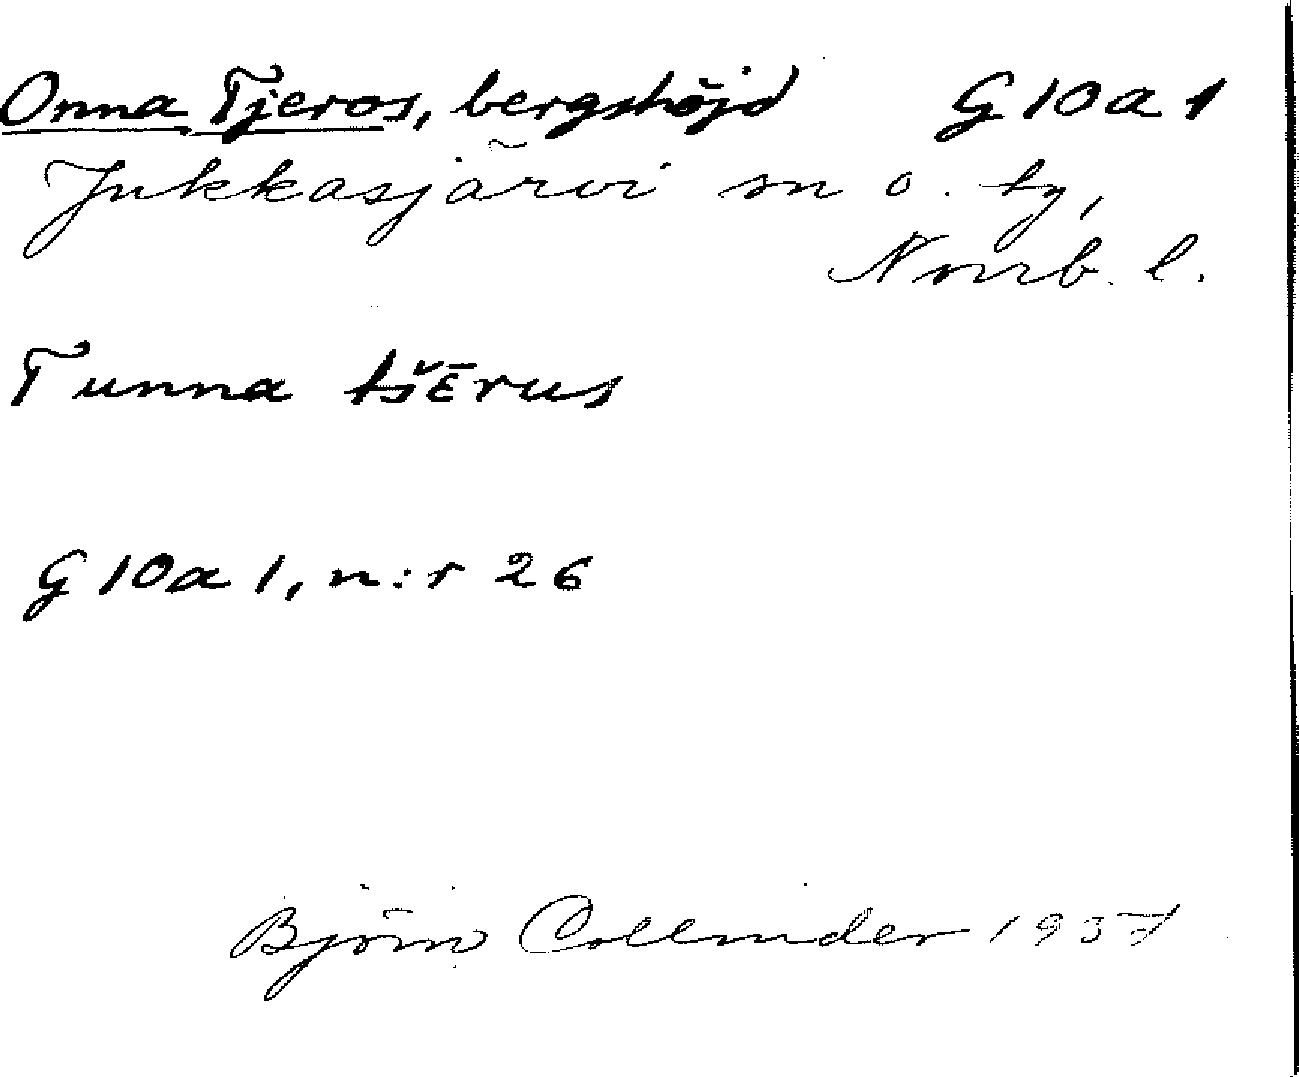 Onna Tjeros, bergshöjd G10a1
Jukkasjärvi sn o. tg,
Norrb. l.
Tunna tšērus
G10a1, n:r 26
Björn Collinder 1937